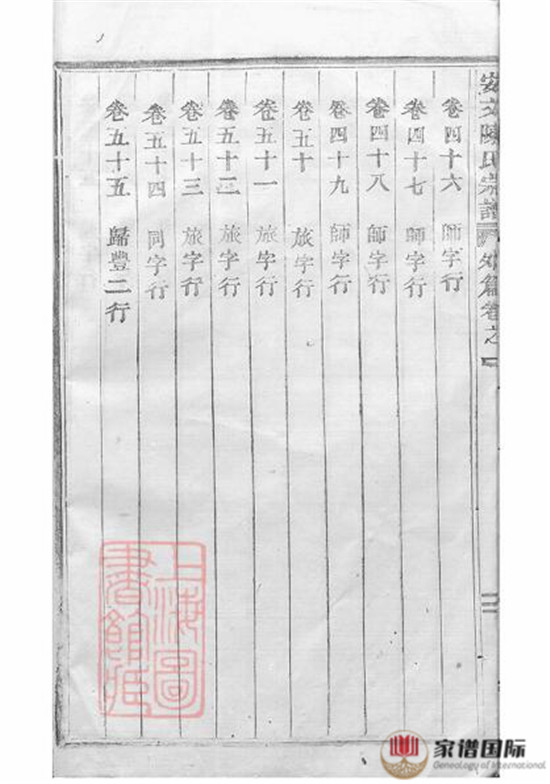 安文陳氏宗譜 外篇卷之一
卷四十六 師字行
卷四十七 師字行
卷四十八 師字行
卷四十九 師字行
卷五十 旅字行
卷五十一 旅字行
卷五十二 旅字行
卷五十三 旅字行
卷五十四 同字行
卷五十五 歸豐二行
二
上海圖
書館藏
家谱国际
Genealogy of International